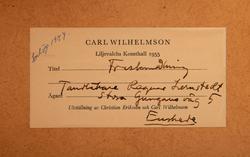 CARL WILHELMSON
Liljevalchs Konsthall 1955
Titel
Tandläkare Ragnar Lernstedt
Ägare Stora Gungans väg 5
Utställning av Christian Eriksson och Carl Wilhelmson
Enskede